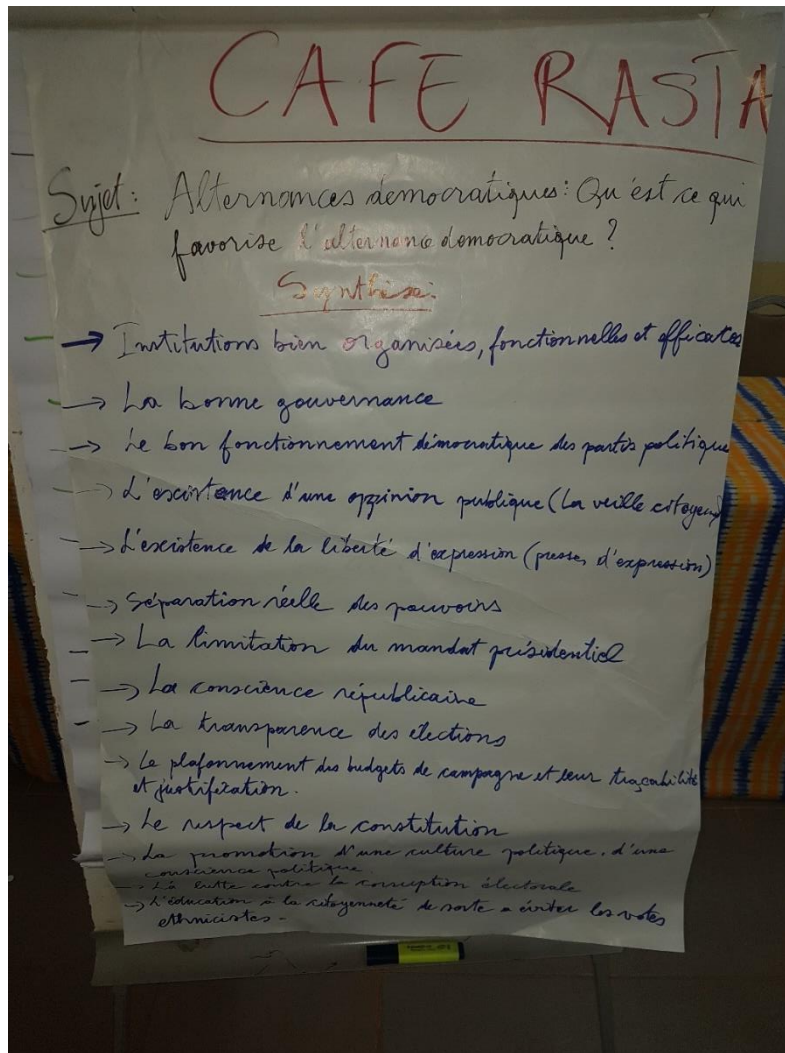 CAFE RASTA
Sujet: Alternances democratiques: Qu'est ce qui
favorise l'alternance democratique ?
Synthèse:
→ Institutions bien organisées, fonctionnelles et efficaces
→ La bonne gouvernance
→ Le bon fonctionnement démocratique des partis politique
→ L'existence d'une oppinion publique (La veille citoyenne)
→ L'existence de la liberté d'expression (presses d'expression)
→ Séparation réelle des pouvoirs
→ La limitation du mandat présidentiel
→ La conscience républicaine
→ La transparence des élections
→ Le plafonnement des budgets de campagne et leur traçabilité
et justification.
→ Le respect de la constitution
→ La promotion d'une culture politique. d'une
conscience politique
→ La lutte contre la corruption électorale
→ L'éducation à la citoyenneté de sorte a éviter les votes
ethnicistes -